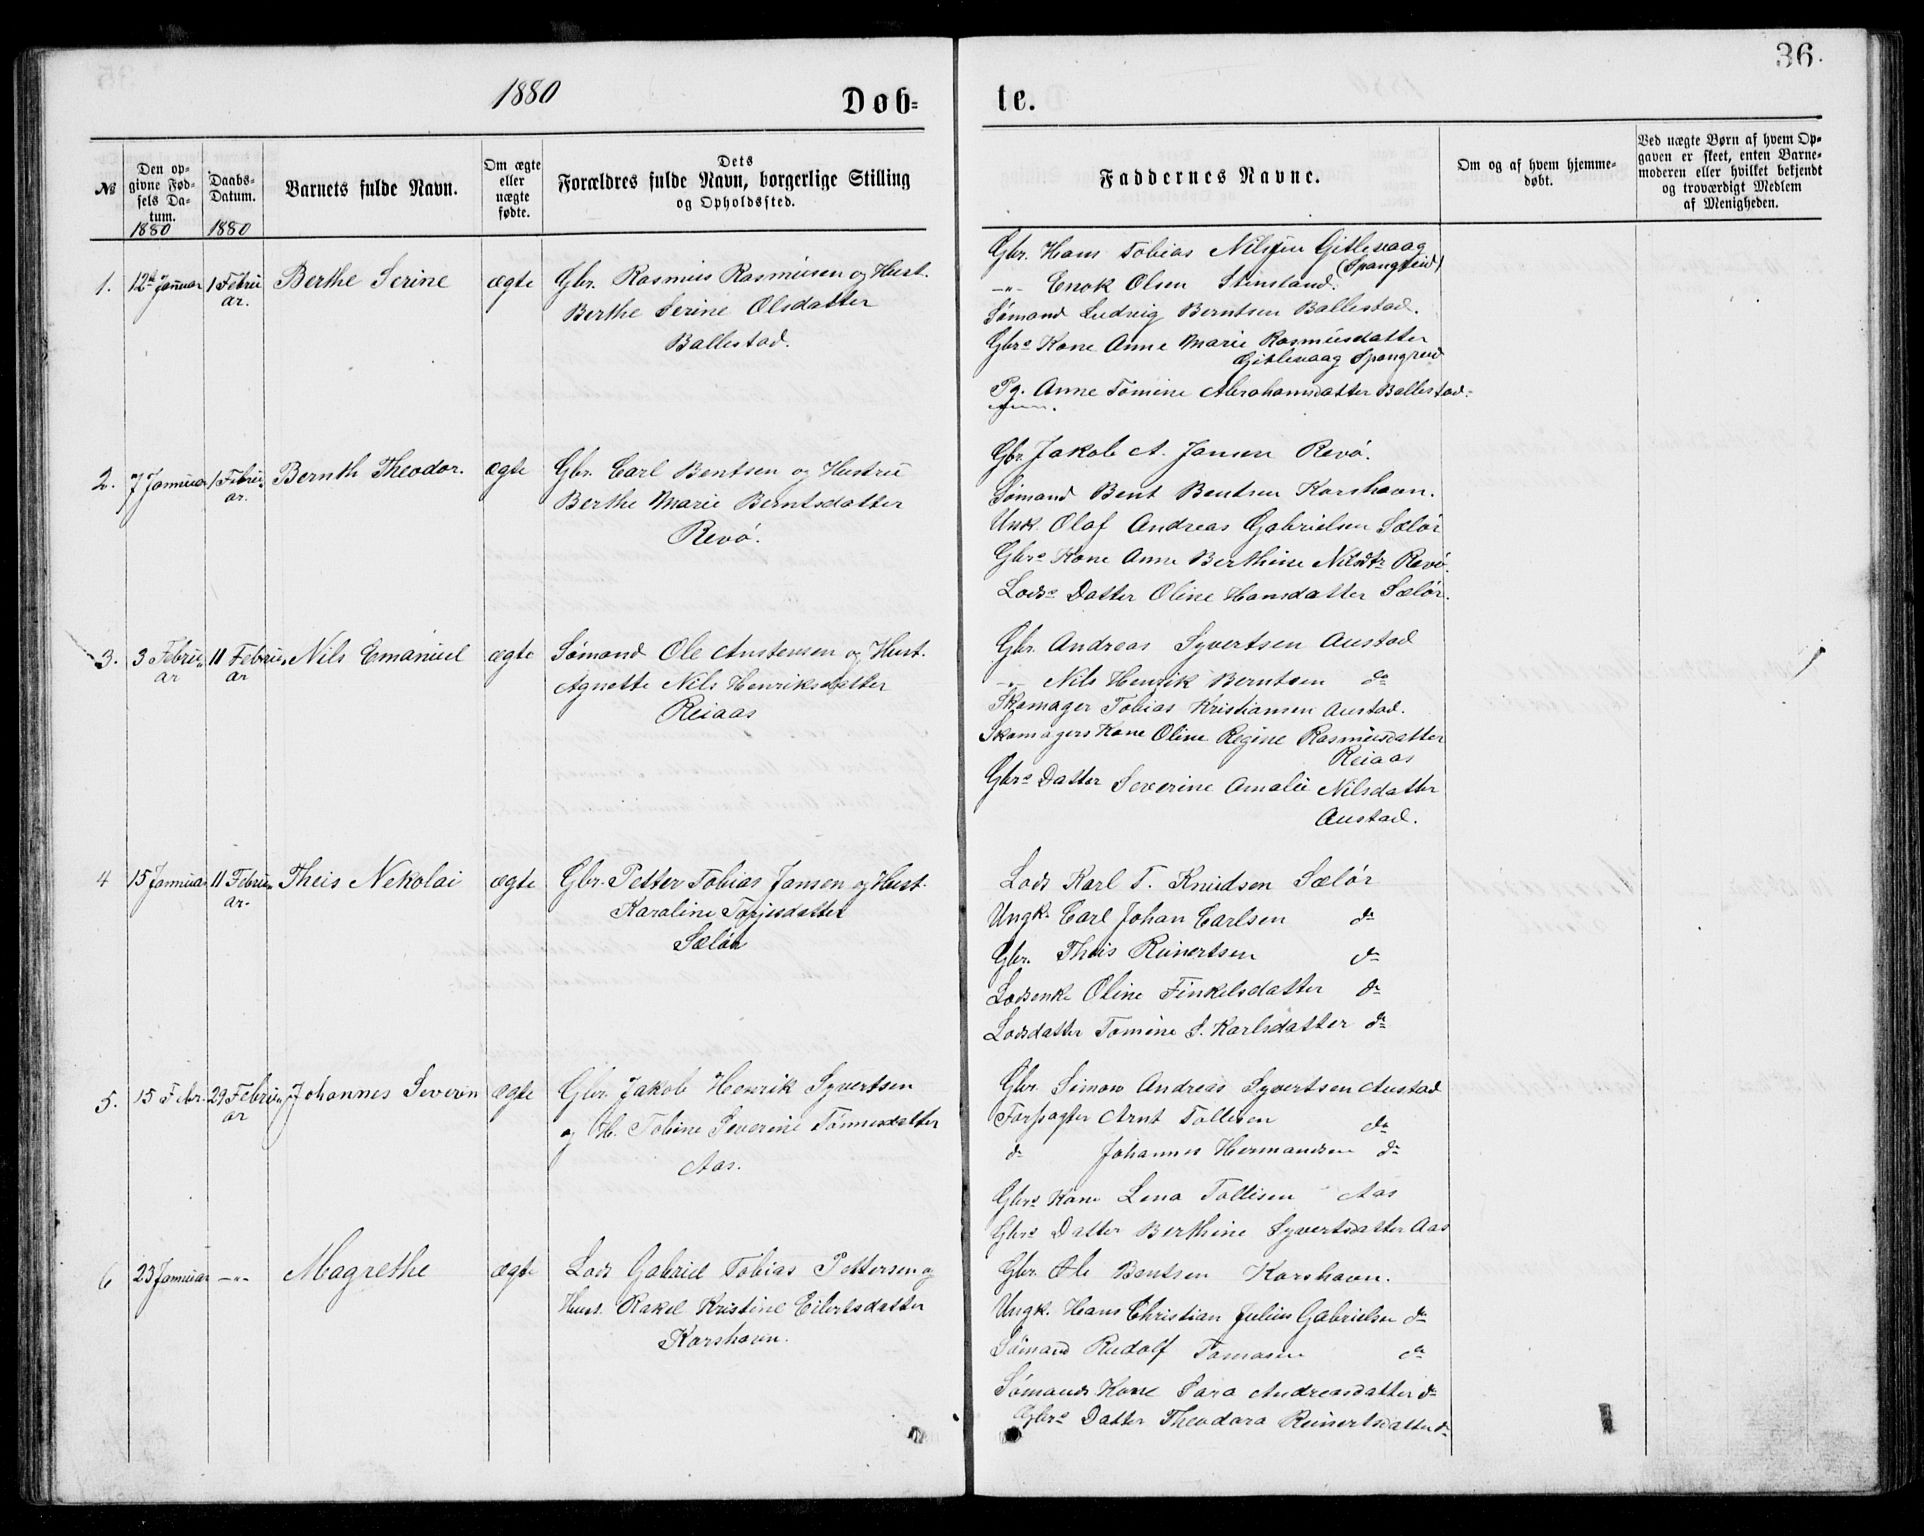 1880
Døb-
te.
36.
№
Den op-
givne Fød-
sels Da-
tum.
1880
Daabs-
Datum.
1880
Barnets fulde Navn.
Om ægte
eller
uægte
fødte.
Dets
Forældres fulde Navn, borgerlige Stilling
og Opholdssted.
Faddernes Navne.
Om og af hvem hjemme-
døbt.
Ved uægte Børn af hvem Op-
gaven er skeet, enten Barne-
moderen eller hvilket bekjendt
og troværdigt Medlem
af Menigheden.
1. 12te Januar 1 Febru
ar.
Berthe Serine
ægte
Gbr. Rasmus Rasmusen og Hust.
Berthe Serine Olsdatter
Ballestad.
Gbr. Hans Tobias Nilsen Gitlevaag
(Spangreid)
-"- Enok Olsen Stensland.
Sømand Ludvig Berntsen Ballestad.
Gbrs Kone Anne Marie Rasmusdatter
Gitlevaag Spangreid
Pg. Anne Tomine Abrahamsdatter Ballestad.
2. 7 Januar 1 Febru
ar.
Bernth Theodor.
ægte
Gbr. Carl Bentsen og Hustru
Berthe Marie Berntsdatter
Revø.
Gbr. Jakob A. Jansen Revø.
Sømand Bent Bentsen Korshavn.
Unk. Olaf Andreas Gabrielsen Sælør
Gbrs Kone Anne Berthine Nilsdtr Revø.
Lods Datter Oline Hansdatter Sælør.
3. 3 Febru
ar
11 Febru
ar
Nils Emanuel
ægte
Sømand Ole Austensen og Hust.
Agnette Nils Henriksdatter
Reiaas
Gbr. Andreas Syvertsen Austad
-"- Nils Henrik Berntsen do
Skomager Tobias Kristiansen Austad.
Skomagers Kone Oline Regine Rasmusdatter
Reiaas
Gbrs Datter Severine Amalie Nilsdatter
Austad.
4 15 Januar 11 Febru
ar.
Theis Nekolai
ægte
Gbr. Petter Tobias Jansen og Hust.
Karoline Tarjesdatter
Sælør
Lods Karl T. Knudsen Sælør
Ungk. Carl Johan Carlsen do
Gbr. Theis Reinertsen do
Lodsenke Oline Finkelsdatter do
Lodsdatter Tomine S. Karlsdatter do
5. 15 Febr. 29 Febru
ar
Johannes Severin
ægte
Gbr. Jakob Henrik Syvertsen
og H. Tobine Severine Tønnesdatter
Aas.
Gbr. Simon Andreas Syvertsen Austad
Forpagter Arnt Tollesen do
do Johannes Hermandsen do
Gbrs Kone Lena Tollisen Aas
Gbrs Datter Berthine Syvertsdatter Aas
6 23 Januar -"-
Magrethe
ægte
Lods Gabriel Tobias Pettersen og
Hust. Rakel Kristine Eilertsdatter
Korshavn.
Gbr. Ole Bentsen Korshavn.
Ungk. Hans Christian Julius Gabrielsen do
Sømand Rudolf Tomasen do
Sømands Kone Sara Andreasdatter do
Gbrs Datter Theodora Reinertsdatter do